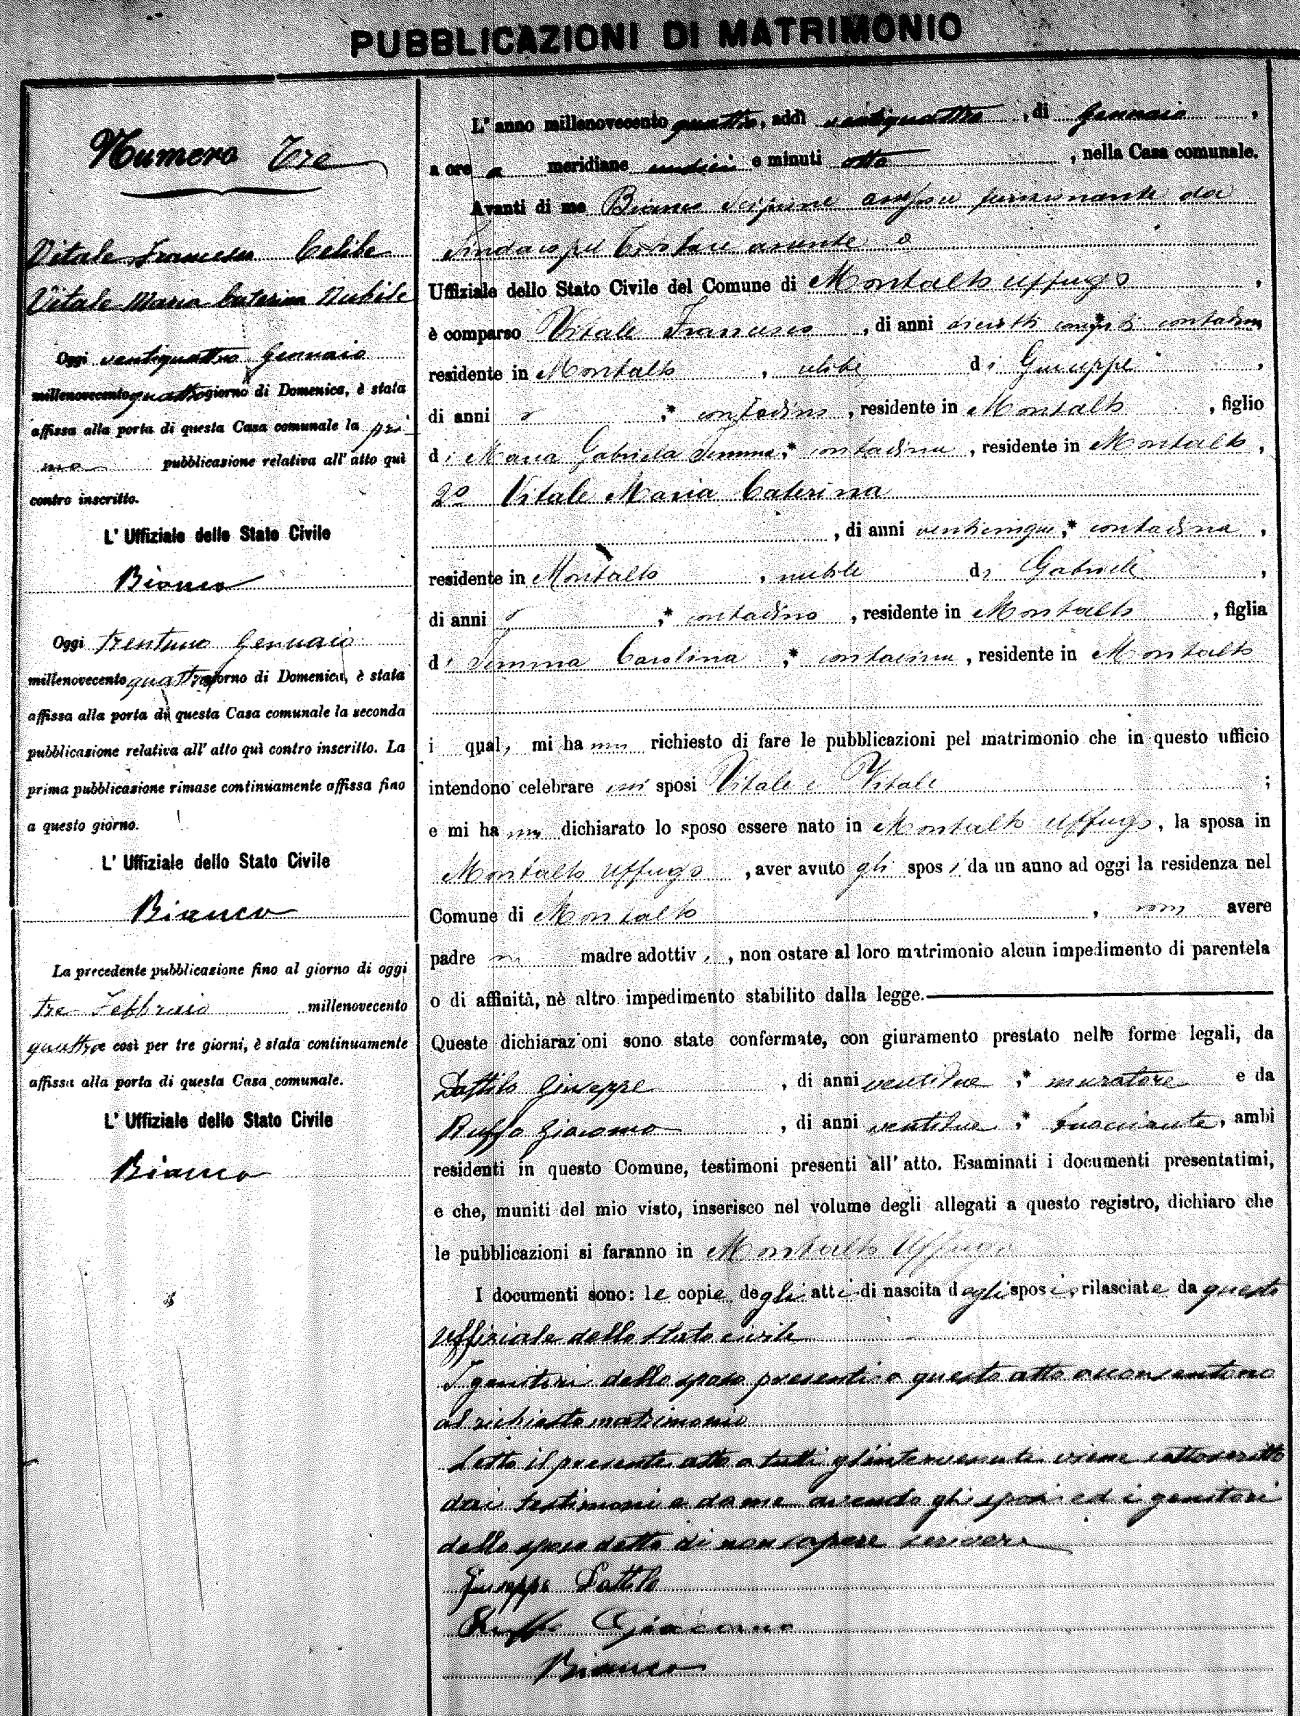 PUBBLICAZIONI DI MATRIMONIO
Numero Tre
Vitale Francesco Celibe
Vitale Maria Caterina Nubile
Oggi ventiquattro Gennaio
millenovecento quattro giorno di Domenica, è stata
affissa alla porta di questa Casa comunale la pri-
ma pubblicazione relativa all' atto quì
contro inscritto.
L' Uffiziale dello Stato Civile
Bianco
Oggi trentuno Gennaio
millenovecento quattro giorno di Domenica, è stata
affissa alla porta di questa Casa comunale la seconda
pubblicazione relativa all' atto quì contro inscritto. La
prima pubblicazione rimase continuamente affissa fino
a questo giorno.
L' Uffiziale dello Stato Civile
Bianco
La precedente pubblicazione fino al giorno di oggi
tre Febbraio millenovecento
quattro e così per tre giorni, è stata continuamente
affissa alla porta di questa Casa comunale.
L' Uffiziale dello Stato Civile
Bianco
L' anno millenovecento quattro, addì ventiquattro, di Gennaio,
a ore a meridiane undici e minuti otto, nella Casa comunale.
Avanti di me Bianco Scipione funzionante da
Sindaco pel titolare assente
Uffiziale dello Stato Civile del Comune di Montalto Uffugo,
è comparso Vitale Francesco, di anni contadino,
residente in Montalto, celibe di Giuseppe,
di anni , * contadino, residente in Montalto, figlio
di Maria Gabriela , * contadina, residente in Montalto,
2º Vitale Maria Caterina
, di anni venticinque, * contadina,
residente in Montalto, nubile di Gabriele,
di anni , * contadino, residente in Montalto, figlia
di Carolina, * contadina, residente in Montalto
i quali mi hanno richiesto di fare le pubblicazioni pel matrimonio che in questo ufficio
intendono celebrare essi sposi Vitale e Vitale;
e mi hanno dichiarato lo sposo essere nato in Montalto Uffugo, la sposa in
Montalto Uffugo, aver avuto gli sposi da un anno ad oggi la residenza nel
Comune di Montalto, non avere
padre ni madre adottivi, non ostare al loro matrimonio alcun impedimento di parentela
o di affinità, nè altro impedimento stabilito dalla legge.
Queste dichiarazioni sono state confermate, con giuramento prestato nelle forme legali, da
Dattilo Giuseppe, di anni ventidue, * muratore e da
Ruffo Giacomo, di anni ventidue, * bracciante, ambi
residenti in questo Comune, testimoni presenti all' atto. Esaminati i documenti presentatimi,
e che, muniti del mio visto, inserisco nel volume degli allegati a questo registro, dichiaro che
le pubblicazioni si faranno in Montalto Uffugo
I documenti sono: le copie degli atti di nascita degli sposi, rilasciate da questo
uffiziale dello stato civile
I genitori dello sposo presenti a questo atto acconsentono
al richiesto matrimonio
Letto il presente atto a tutti gl'intervenuti viene sottoscritto
dai testimoni e da me avendo gli sposi ed i genitori
dello sposo detto di non sapere scrivere
Giuseppe Dattilo
Ruffo Giacomo
Bianco